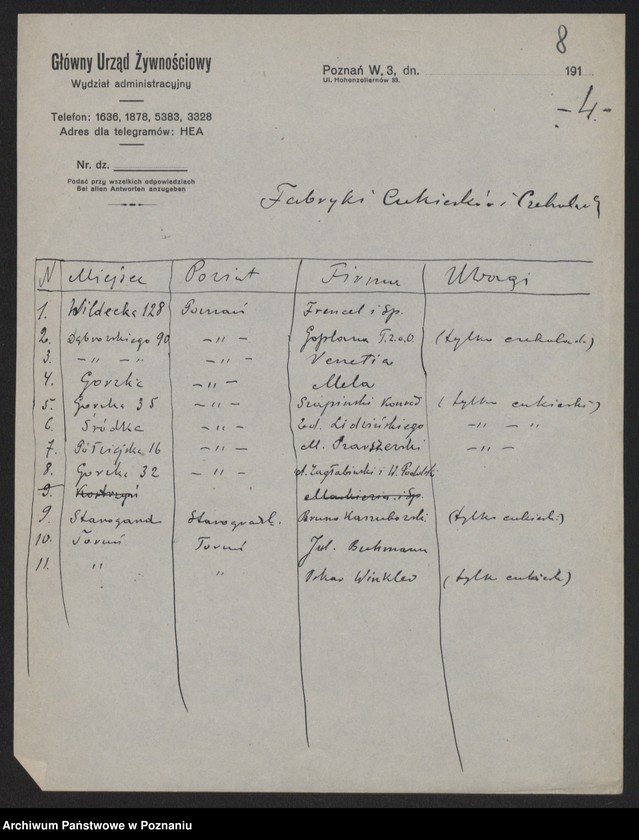 8
Główny Urząd Żywnościowy
Wydział administracyjny
Poznań W. 3, dn. 191
Ul. Hohenzollernów 33.
-4.-
Telefon: 1636, 1878, 5383, 3328
Adres dla telegramów: HEA
Nr. dz.
Podać przy wszelkich odpowiedziach
Bei allen Antworten anzugeben
Fabryki Cukierków i Czekolady
N Miejsce Powiat Firma Uwagi
1. Wildecka 128 Poznań Frencel i Sp.
2. Dąbrowskiego 90 -"- Goplana T.z.o.O. (tylko czekolada)
3. -"- -"- -"- Venetia
4. Gorzka -"- Mela
5. Gorzka 35 -"- Konrad (tylko cukierki)
6. Śródka -"- -"- -"-
7. Półwiejska 16 -"- M. -"-
8. Gorzka 32 -"- A. Zagłabinski i W.
9. Kostrzyń
9. Starogard Starogardz. Bruno Kaszubowski (tylko cukierki)
10. Toruń Toruń
11. " " Oskar Winkler (tylko cukierki)
Archiwum Państwowe w Poznaniu